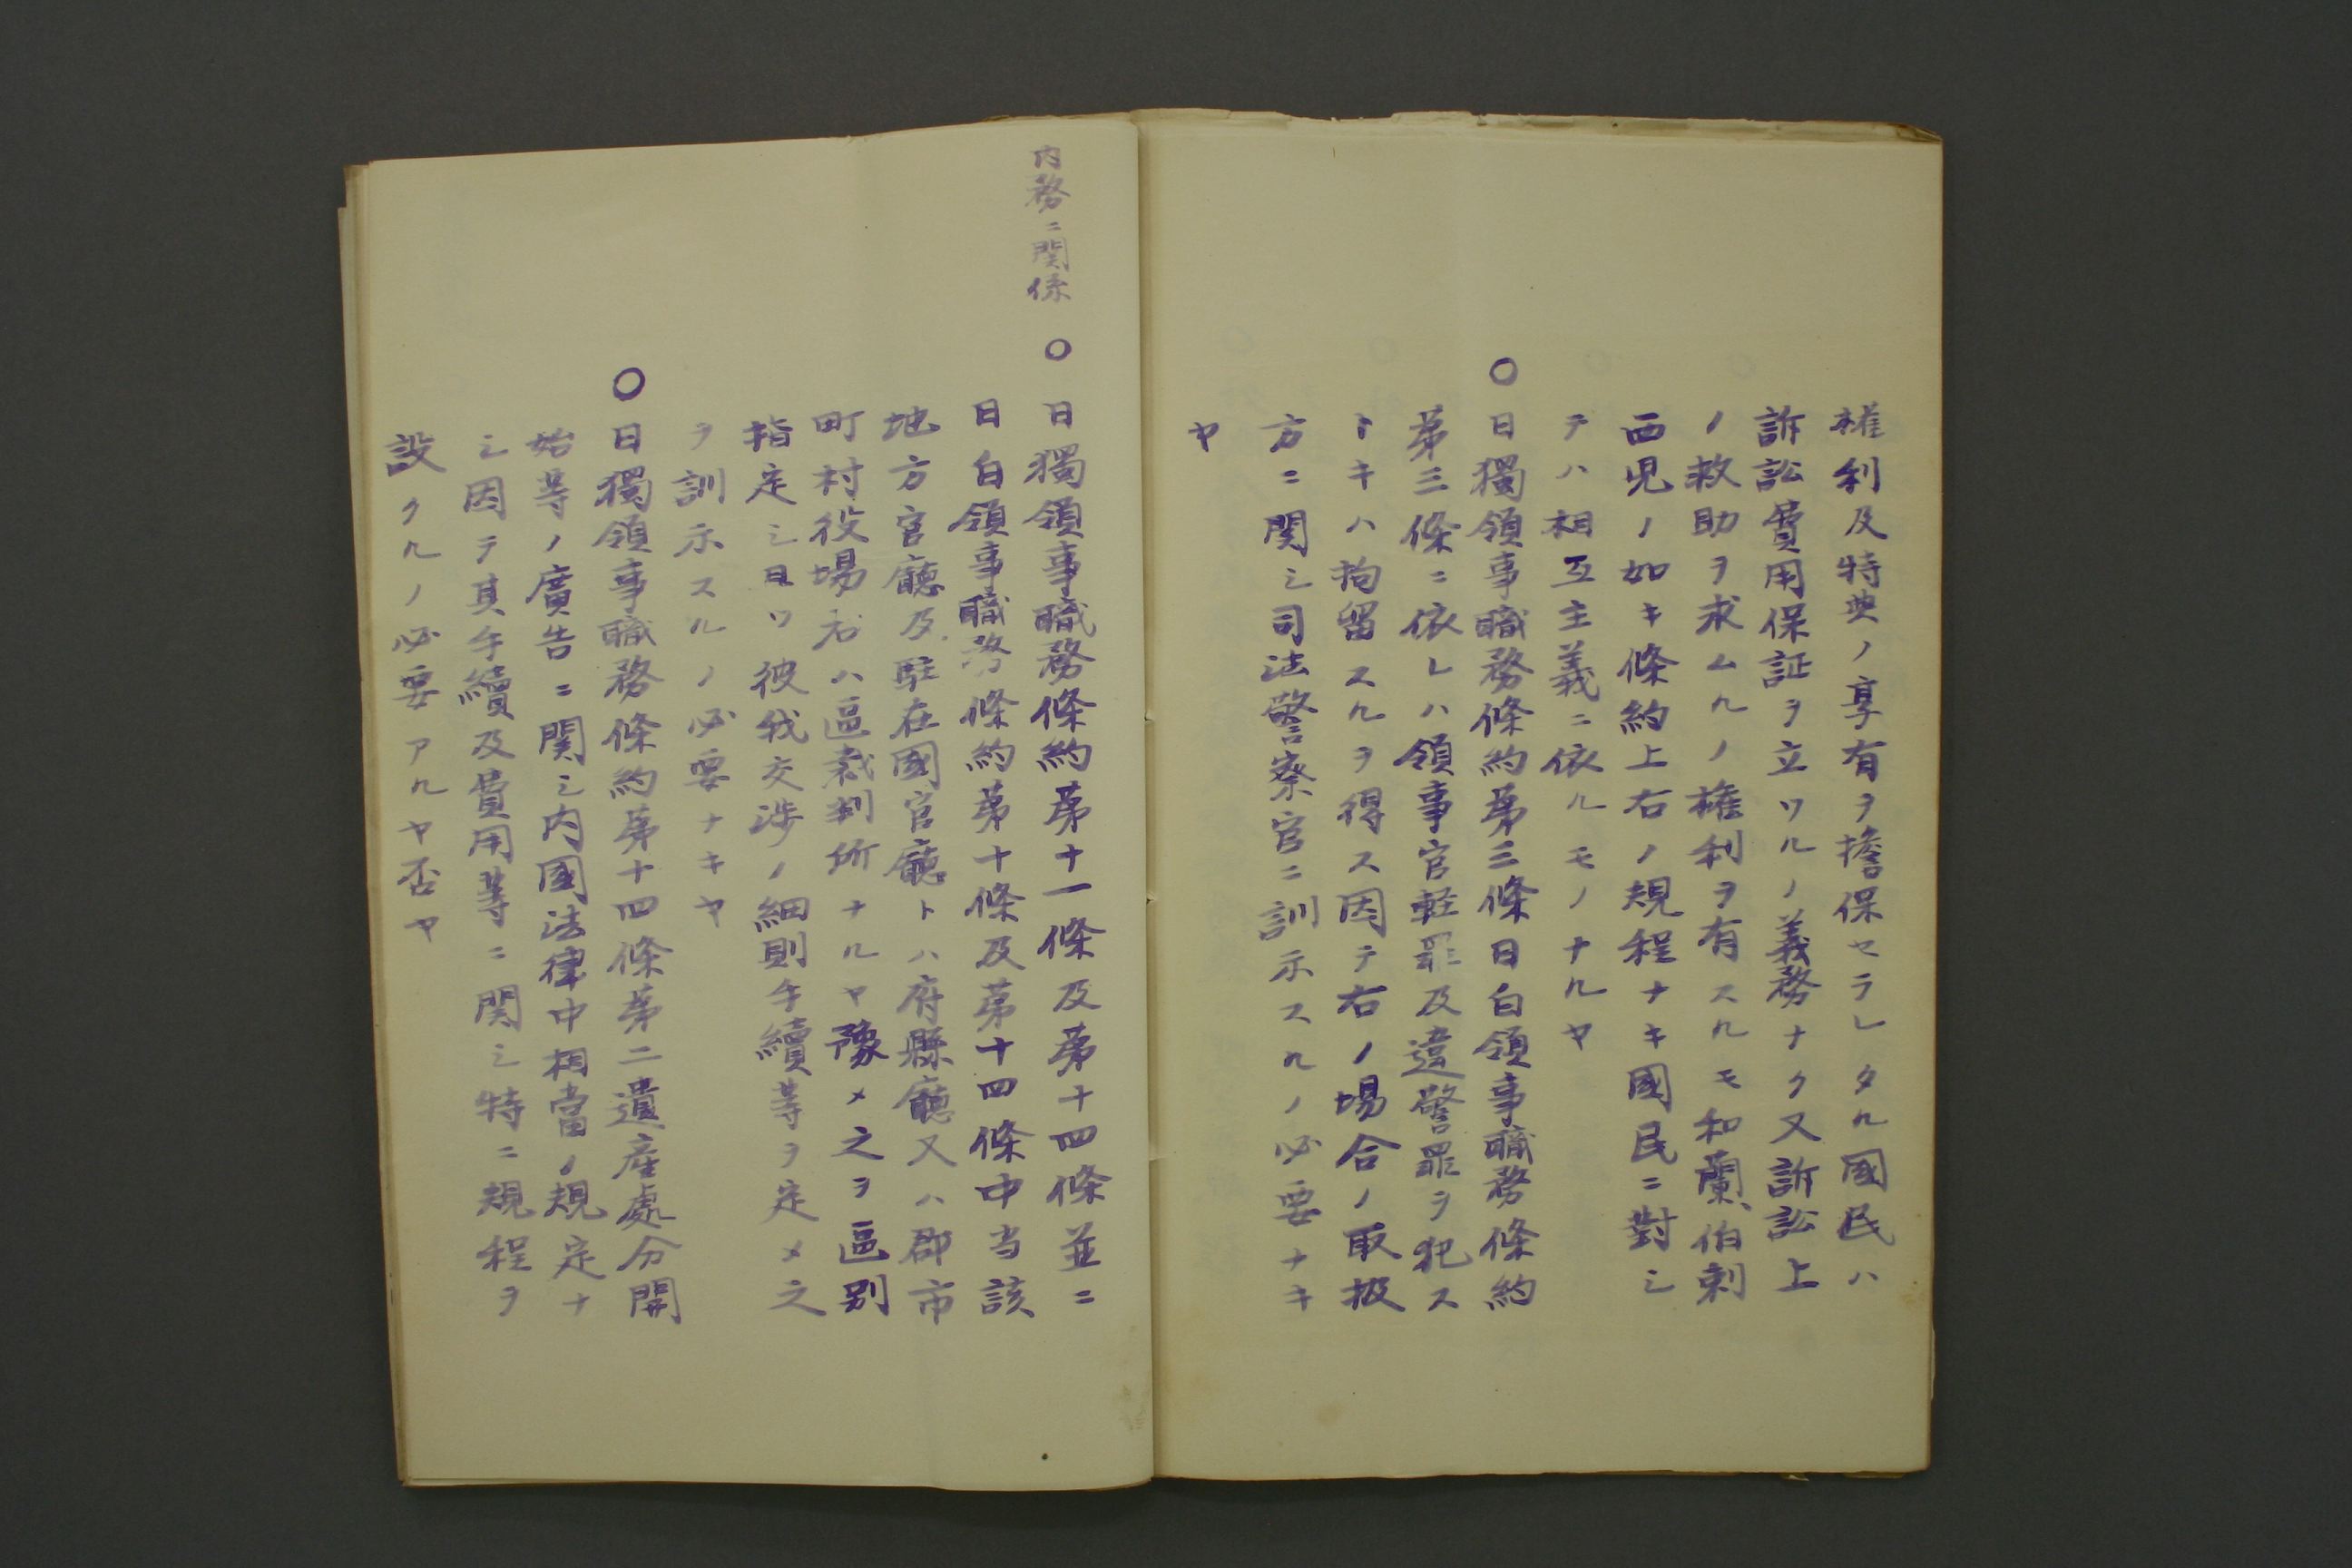 權利及特典ノ享有ヲ擔保セラレタル國民ハ
訴訟費用保証ヲ立ツルノ義務ナク又訴訟上
ノ救助ヲ求ムルノ權利ヲ有スルモ和蘭、伯剌
西児ノ如キ條約上右ノ規程ナキ國民ニ對シ
テハ相互主義ニ依ルモノナルヤ
○日獨領事職務條約第三條日白領事職務條約
第三條ニ依レハ領事官軽罪及違警罪ヲ犯ス
トキハ拘留スルヲ得ス因テ右ノ場合ノ取扱
方ニ関シ司法警察官ニ訓示スルノ必要ナキ
ヤ
内務ニ関係
○日獨領事職務條約第十一條及第十四條並ニ
日白領事職務條約第十條及第十四條中当該
地方官廳及駐在國官廳トハ府縣廳又ハ郡市
町村役場若ハ區裁判所ナルヤ豫メ之ヲ區別
指定シ且ツ彼我交渉ノ細則手續等ヲ定メ之
ヲ訓示スルノ必要ナキヤ
○日獨領事職務條約第十四條第二遺産處分開
始等ノ廣告ニ関シ内國法律中相當ノ規定ナ
シ因テ其手續及費用等ニ関シ特ニ規程ヲ
設クルノ必要アルヤ否ヤ